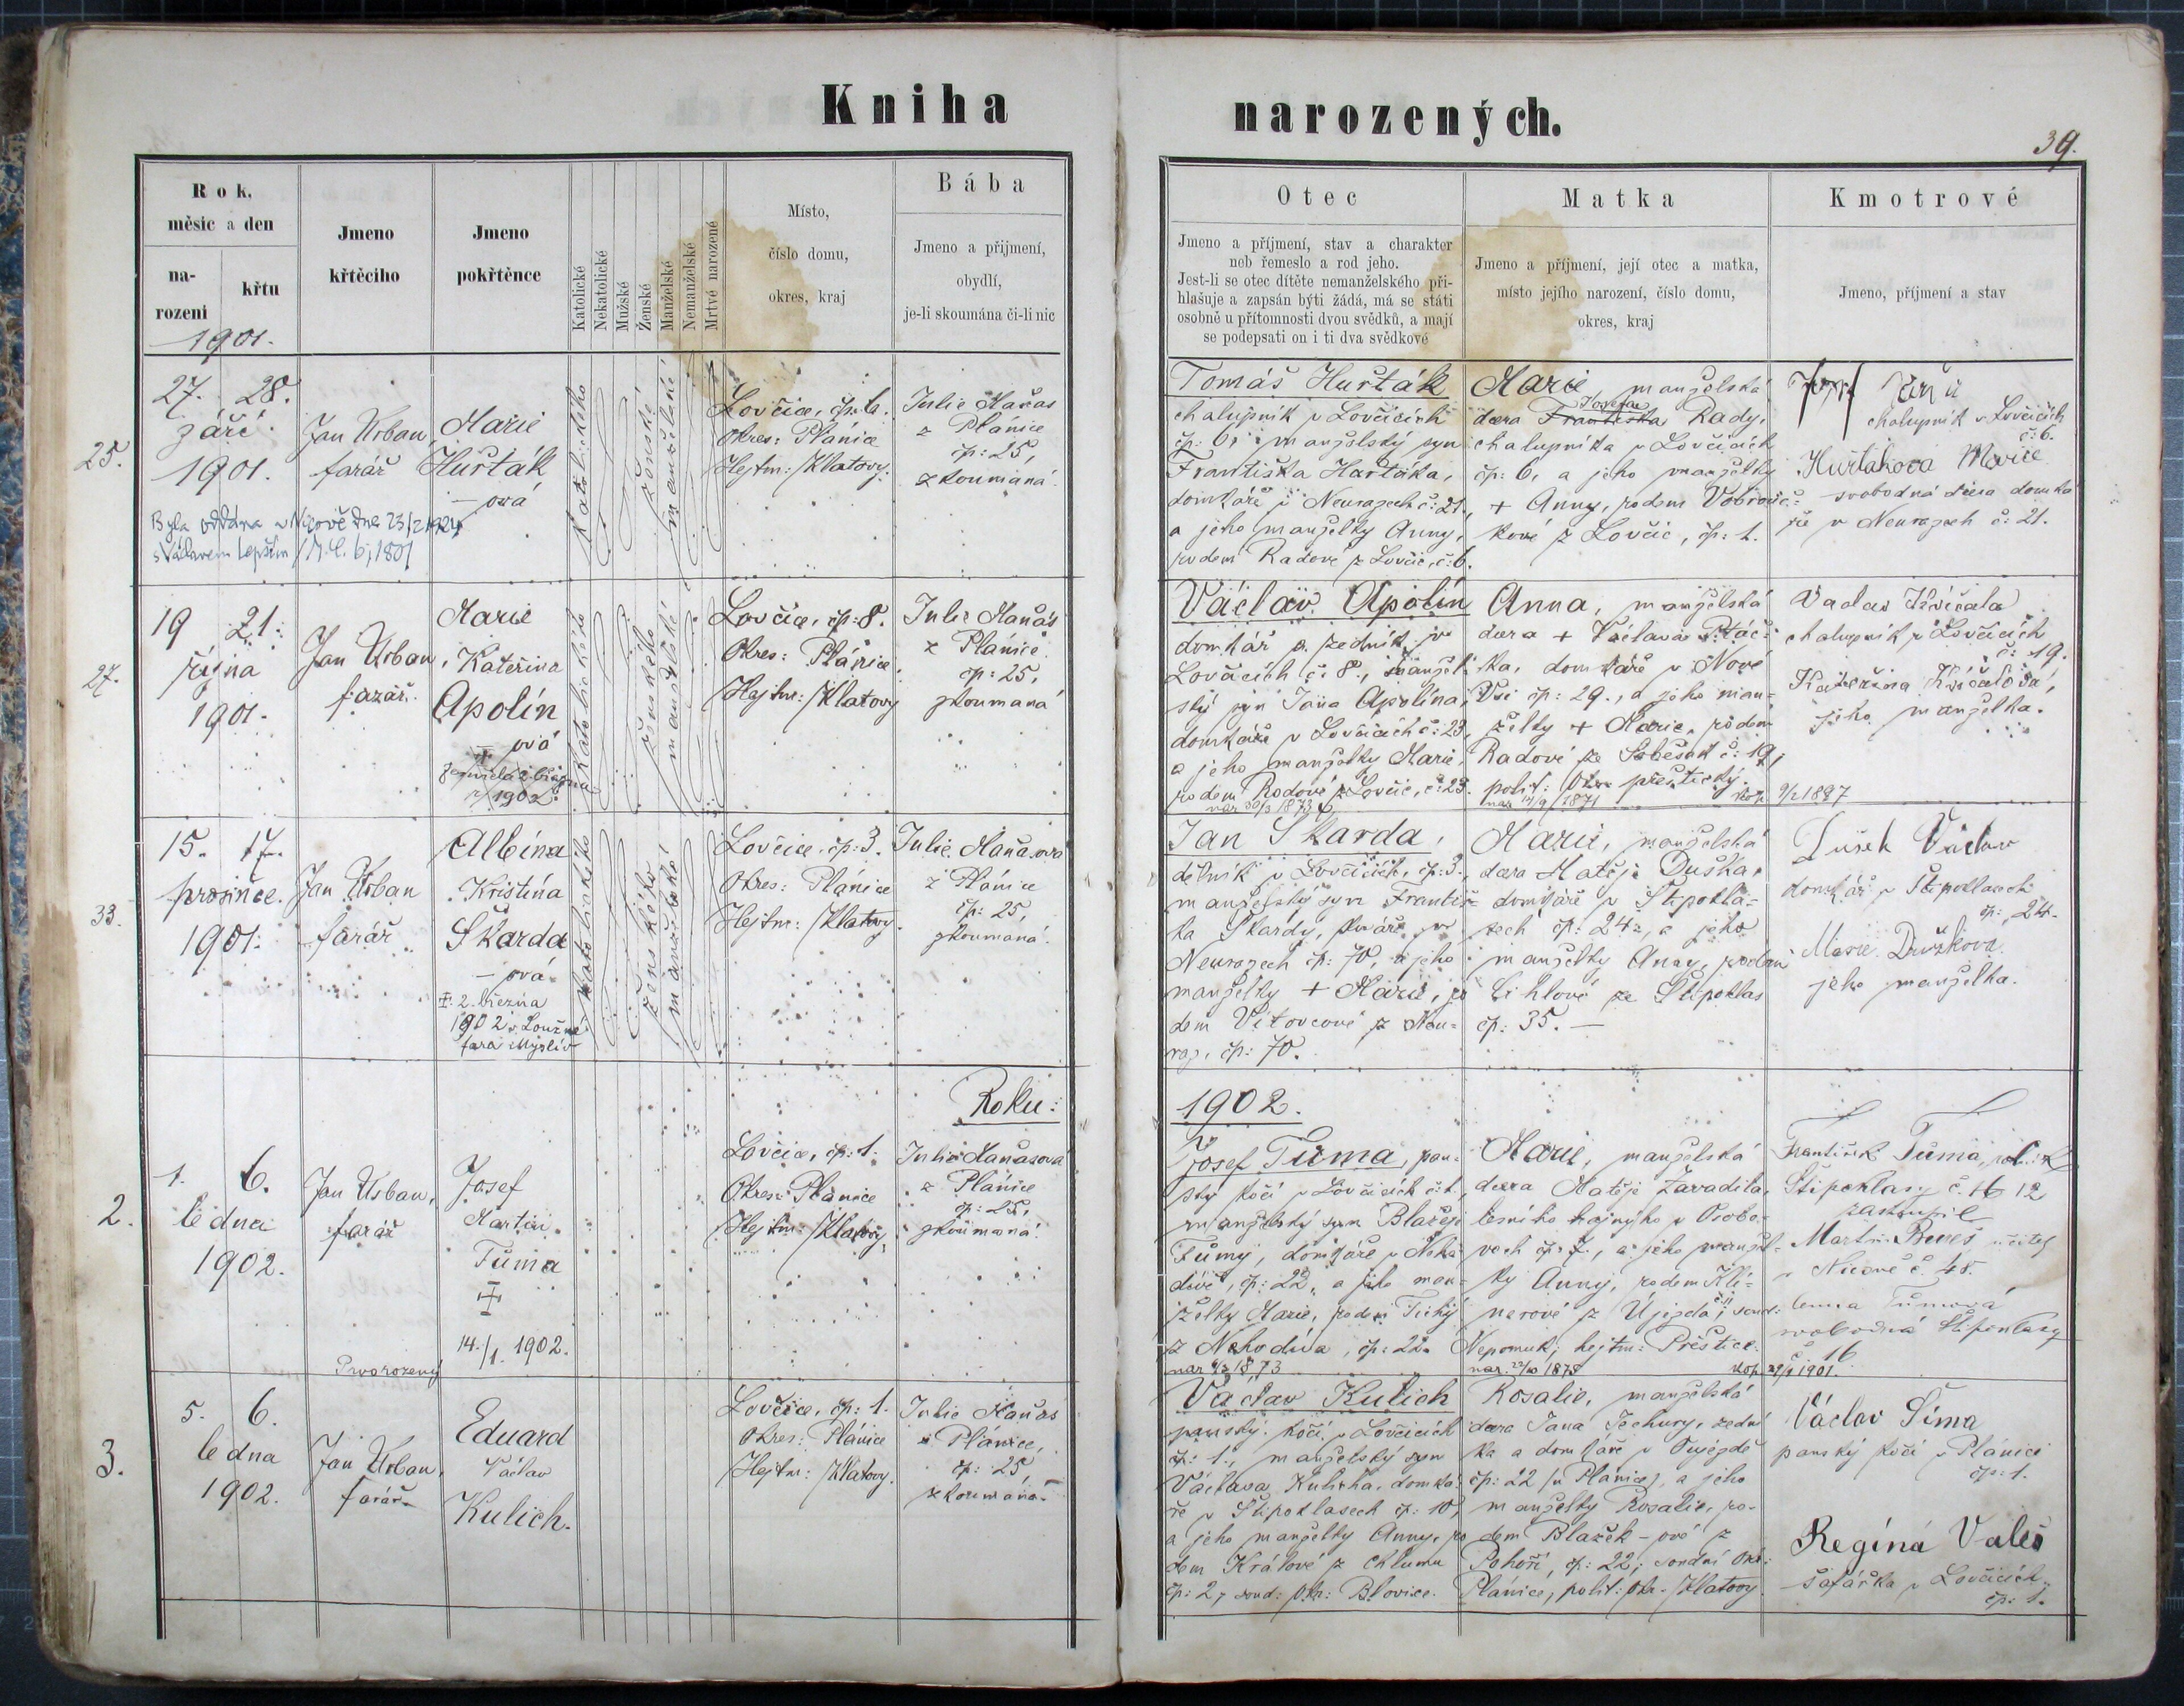 Kniha
narozených.
39.
Rok,
měsic a den
na-
rozeni
křtu
Jmeno
křtěciho
Jmeno
pokřtěnce
Katolické
Nekatolické
Mužské
Ženské
Manželské
Nemanželské
Mrtvé narozené
Místo,
číslo domu,
okres, kraj
Bába
Jmeno a přijmení,
obydlí,
je-li skoumána či-li nic
Otec
Jmeno a příjmení, stav a charakter
neb řemeslo a rod jeho.
Jest-li se otec dítěte nemanželského při-
hlašuje a zapsán býti žádá, má se státi
osobně u přítomnosti dvou svědků, a mají
se podepsati on i ti dva svědkové
Matka
Jmeno a příjmení, její otec a matka,
místo jejího narození, číslo domu,
okres, kraj
Kmotrové
Jmeno, příjmení a stav
1901.
25.
27. 28.
září
1901.
Jan Urban
farář
Marie
Hurták
- ová
Katolického
ženské
manželské
Lovčice, čp: 6.
Okres: Plánice
Hejtm: Klatovy.
Julie Maňas
z Plánice
čp: 25,
zkoumaná.
Tomáš Hurták
chalupník v Lovčicích
čp: 6, manželský syn
Františka Hurtáka,
domkáře v Neurazech č: 21.,
a jeho manželky Anny,
rodem Radové z Lovčic, č: 6.
Marie, manželská
Josefa
dcera Františka Rady,
chalupníka v Lovčicích
čp: 6, a jeho manželky
+ Anny, rodem
kové z Lovčic, čp: 1.
chalupník v Lovčicích
č: 6.
Hurtakova Marie
svobodná dcera domká
ře v Neurazech č: 21.
27.
19 21.
října
1901.
Jan Urban,
farář.
Marie
Kateřina
Apolín
- ová
zemřela 2. března
1902.
Katolického
ženského
manželské
Lovčice, čp: 8.
Okres: Plánice
Hejtm: Klatovy
Julie Maňas
z Plánice
čp: 25,
zkoumaná
Václav Apolín
domkář a zedník v
Lovčicích č: 8., manžel-
ský syn Jana Apolína,
domkáře v Lovčicích č: 23,
a jeho manželky Marie,
rodem Radové z Lovčic, č: 23.
nar 30/3 1873
Anna, manželská
dcera + Václava Ptáč-
ka, domkáře v Nové
Vsi čp: 29., a jeho man-
želky + Marie, rodem
Radové ze Soběsuk č: 19,
polit: Okr. přeštický.
nar 14/9 1871
kop. 9/2 1897
Vaclav Křičala
chalupník v Lovčicích
č: 19.
Kateřina Křičalová,
jeho manželka.
33.
15. 17.
prosince.
1901.
Jan Urban
farář
Albína
Kristína
Škarda
- ová
+ 2. března
1902 v Loužné
fara Myslív
Katolického
ženského
manželské
Lovčice, čp: 3.
Okres: Plánice
Hejtm: Klatovy.
Julie Maňasová
z Plánice
čp: 25,
zkoumaná.
Jan Škarda,
dělník v Lovčicích, čp: 3.,
manželský syn Františ-
ka Škardy, v
Neurazech čp: 70, a jeho
manželky + Marie, ro
dem Vítovcové z Neu-
raz, čp: 70.
Marie, manželská
dcera Matěje Duška,
domkáře v Štipokla-
sech čp: 24, a jeho
manželky Anny, rodem
Cihlové ze Štipoklas
čp: 35. -
Dušek Václav
domkář v Štipoklasech
čp: 24.
Marie Dušková
jeho manželka.
Roku:
1902.
2.
1. 6.
ledna
1902.
Jan Urban,
farář
Prvorozený
Josef
Martin
Tůma
+
14./1. 1902.
Lovčice, čp: 1.
Okres: Plánice
Hejtm: Klatovy
Julie Maňasová
z Plánice
čp: 25,
zkoumaná.
Josef Tůma, pan-
ský kočí v Lovčicích č: 1.,
manželský syn Blažeje
Tůmy, domkáře v Neho-
divě, čp: 22, a jeho man-
želky Marie, rodem Tichý
z Nehodiva, čp: 22.
nar 6/3 1873
Marie, manželská
dcera Matěje Zavadila,
lesního hajného v Osobo-
vech čp: 7., a jeho manžel-
ky Anny, rodem Klí-
nerové z Újezda, soud:
Nepomuk, hejtm: Přeštice.
nar. 22/10 1878
kop. 29/1 1901.
František Tůma,
Štipoklasy č. 16 12
zastoupil
Martin Beneš učitel
v Nicově č. 48.
Tůmová
svobodná Štipoklasy
č 16.
3.
5. 6.
ledna
1902.
Jan Urban,
farář
Eduard
Václav
Kulich.
Lovčice, čp: 1.
Okres: Plánice
Hejtm: Klatovy.
Julie Maňas
z Plánice,
čp: 25,
zkoumaná.
Václav Kulich
panský kočí v Lovčicích
čp: 1., manželský syn
Václava Kulicha, domká-
ře v Štipoklasech čp: 10,
a jeho manželky Anny, ro
dem Králové z Chlumu
čp: 2, soud: Okr: Blovice.
Rosalie, manželská
dcera Jana Jechury, zední
ka a domkáře v Oujezdě
čp: 22 (u Plánice), a jeho
manželky Rosalie, ro-
dem Blažek - ové z
Pohoří, čp: 22; soudní okr:
Plánice, polit: Okr. Klatovy.
Václav Šíma
panský kočí v Plánici
čp: 1.
Regína Valeš
šafářka v Lovčicích
čp: 1.